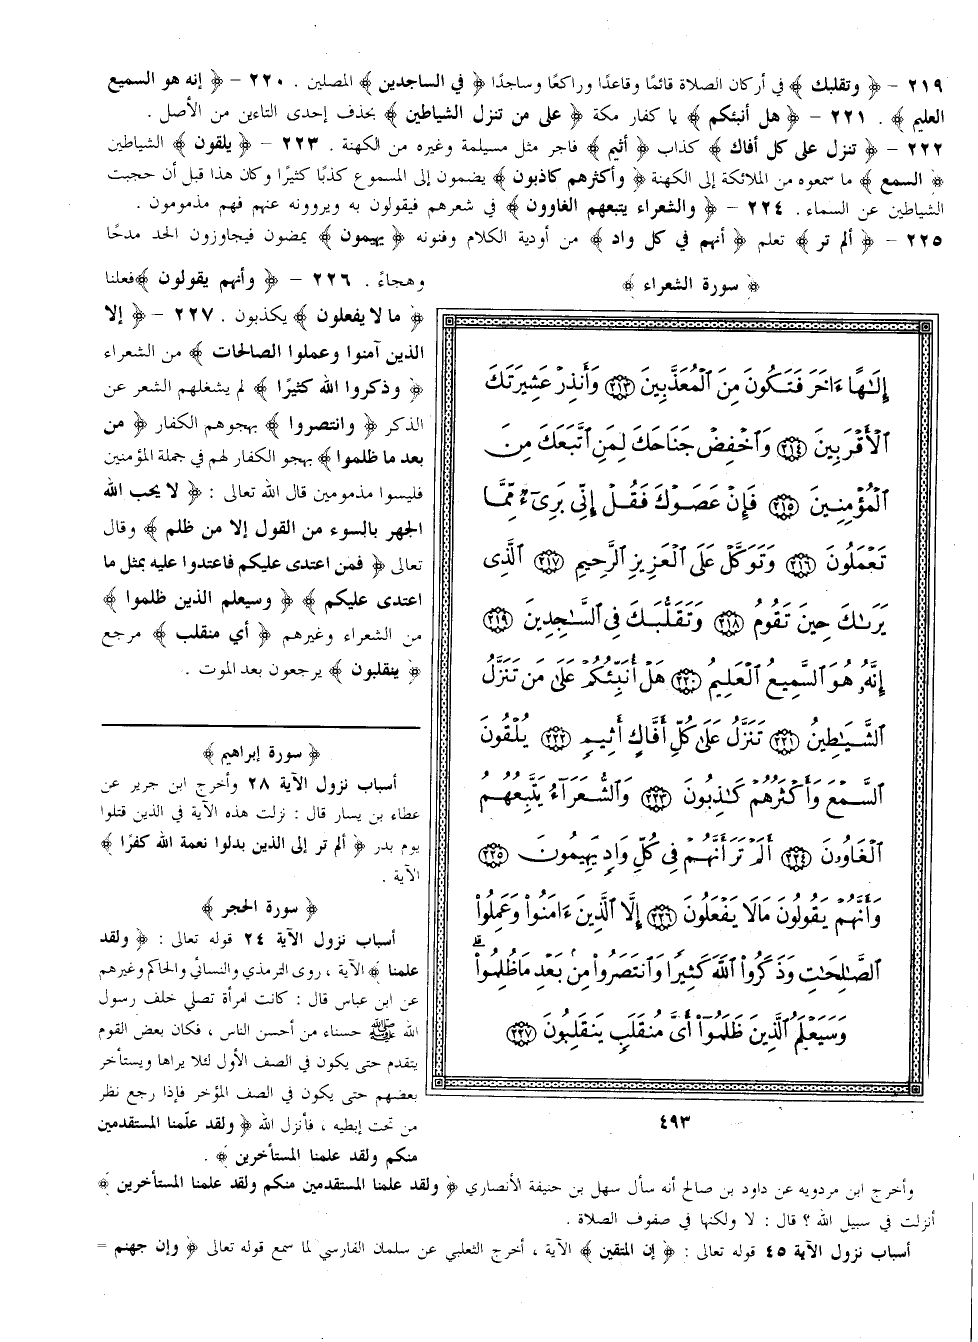 ٢١٩ - ﴿ وتقلبك ﴾ في أركان الصلاة قائمًا وقاعدًا وراكعًا وساجدًا ﴿ في الساجدين ﴾ المصلين . ٢٢٠ - ﴿ إنه هو السميع
العليم ﴾ . ٢٢١ - ﴿ هل أنبئكم ﴾ يا كفار مكة ﴿ على من تنزل الشياطين ﴾ بحذف إحدى التاءين من الأصل .
٢٢٢ - ﴿ تنزل على كل أفاك ﴾ كذاب ﴿ أثيم ﴾ فاجر مثل مسيلمة وغيره من الكهنة . ٢٢٣ - ﴿ يلقون ﴾ الشياطين
﴿ السمع ﴾ ما سمعوه من الملائكة إلى الكهنة ﴿ وأكثرهم كاذبون ﴾ يضمون إلى المسموع كذبًا كثيرًا وكان هذا قبل أن حجبت
الشياطين عن السماء . ٢٢٤ - ﴿ والشعراء يتبعهم الغاوون ﴾ في شعرهم فيقولون به ويروونه عنهم فهم مذمومون .
٢٢٥ - ﴿ ألم تر ﴾ تعلم ﴿ أنهم في كل واد ﴾ من أودية الكلام وفنونه ﴿ يهيمون ﴾ يمضون فيجاوزون الحد مدحًا
﴿ سورة الشعراء ﴾
إِلَٰهًا ءَاخَرَ فَتَكُونَ مِنَ الْمُعَذَّبِينَ ٢١٣ وَأَنذِرْ عَشِيرَتَكَ
الْأَقْرَبِينَ ٢١٤ وَاخْفِضْ جَنَاحَكَ لِمَنِ اتَّبَعَكَ مِنَ
الْمُؤْمِنِينَ ٢١٥ فَإِنْ عَصَوْكَ فَقُلْ إِنِّي بَرِيءٌ مِّمَّا
تَعْمَلُونَ ٢١٦ وَتَوَكَّلْ عَلَى الْعَزِيزِ الرَّحِيمِ ٢١٧ الَّذِي
يَرَىٰكَ حِينَ تَقُومُ ٢١٨ وَتَقَلُّبَكَ فِي السَّٰجِدِينَ ٢١٩
إِنَّهُۥ هُوَ السَّمِيعُ الْعَلِيمُ ٢٢٠ هَلْ أُنَبِّئُكُمْ عَلَىٰ مَن تَنَزَّلُ
الشَّيَٰطِينُ ٢٢١ تَنَزَّلُ عَلَىٰ كُلِّ أَفَّاكٍ أَثِيمٍ ٢٢٢ يُلْقُونَ
السَّمْعَ وَأَكْثَرُهُمْ كَٰذِبُونَ ٢٢٣ وَالشُّعَرَآءُ يَتَّبِعُهُمُ
الْغَاوُۥنَ ٢٢٤ أَلَمْ تَرَ أَنَّهُمْ فِي كُلِّ وَادٍ يَهِيمُونَ ٢٢٥
وَأَنَّهُمْ يَقُولُونَ مَا لَا يَفْعَلُونَ ٢٢٦ إِلَّا الَّذِينَ ءَامَنُوا وَعَمِلُوا
الصَّٰلِحَٰتِ وَذَكَرُوا اللَّهَ كَثِيرًا وَانتَصَرُوا مِنۢ بَعْدِ مَا ظُلِمُوا ۗ
وَسَيَعْلَمُ الَّذِينَ ظَلَمُوٓا أَيَّ مُنقَلَبٍ يَنقَلِبُونَ ٢٢٧
٤٩٣
وهجاءً . ٢٢٦ - ﴿ وأنهم يقولون ﴾ فعلنا
﴿ ما لا يفعلون ﴾ يكذبون . ٢٢٧ - ﴿ إلا
الذين آمنوا وعملوا الصالحات ﴾ من الشعراء
﴿ وذكروا الله كثيرًا ﴾ لم يشغلهم الشعر عن
الذكر ﴿ وانتصروا ﴾ بهجوهم الكفار ﴿ من
بعد ما ظلموا ﴾ بهجو الكفار لهم في جملة المؤمنين
فليسوا مذمومين قال الله تعالى : ﴿ لا يحب الله
الجهر بالسوء من القول إلا من ظلم ﴾ وقال
تعالى ﴿ فمن اعتدى عليكم فاعتدوا عليه بمثل ما
اعتدى عليكم ﴾ ﴿ وسيعلم الذين ظلموا ﴾
من الشعراء وغيرهم ﴿ أي منقلب ﴾ مرجع
﴿ ينقلبون ﴾ يرجعون بعد الموت .
﴿ سورة إبراهيم ﴾
أسباب نزول الآية ٢٨ وأخرج ابن جرير عن
عطاء بن يسار قال : نزلت هذه الآية في الذين قتلوا
يوم بدر ﴿ ألم تر إلى الذين بدلوا نعمة الله كفرًا ﴾
الآية .
﴿ سورة الحجر ﴾
أسباب نزول الآية ٢٤ قوله تعالى : ﴿ ولقد
علمنا ﴾ الآية ، روى الترمذي والنسائي والحاكم وغيرهم
عن ابن عباس قال : كانت امرأة تصلي خلف رسول
الله ﷺ حسناء من أحسن الناس ، فكان بعض القوم
يتقدم حتى يكون في الصف الأول لئلا يراها ويستأخر
بعضهم حتى يكون في الصف المؤخر فإذا رجع نظر
من تحت إبطيه ، فأنزل الله ﴿ ولقد علّمنا المستقدمين
منكم ولقد علمنا المستأخرين ﴾ .
وأخرج ابن مردويه عن داود بن صالح أنه سأل سهل بن حنيفة الأنصاري ﴿ ولقد علمنا المستقدمين منكم ولقد علمنا المستأخرين ﴾
أنزلت في سبيل الله ؟ قال : لا ولكنها في صفوف الصلاة .
أسباب نزول الآية ٤٥ قوله تعالى : ﴿ إن المتقين ﴾ الآية ، أخرج الثعلبي عن سلمان الفارسي لما سمع قوله تعالى ﴿ وإن جهنم =